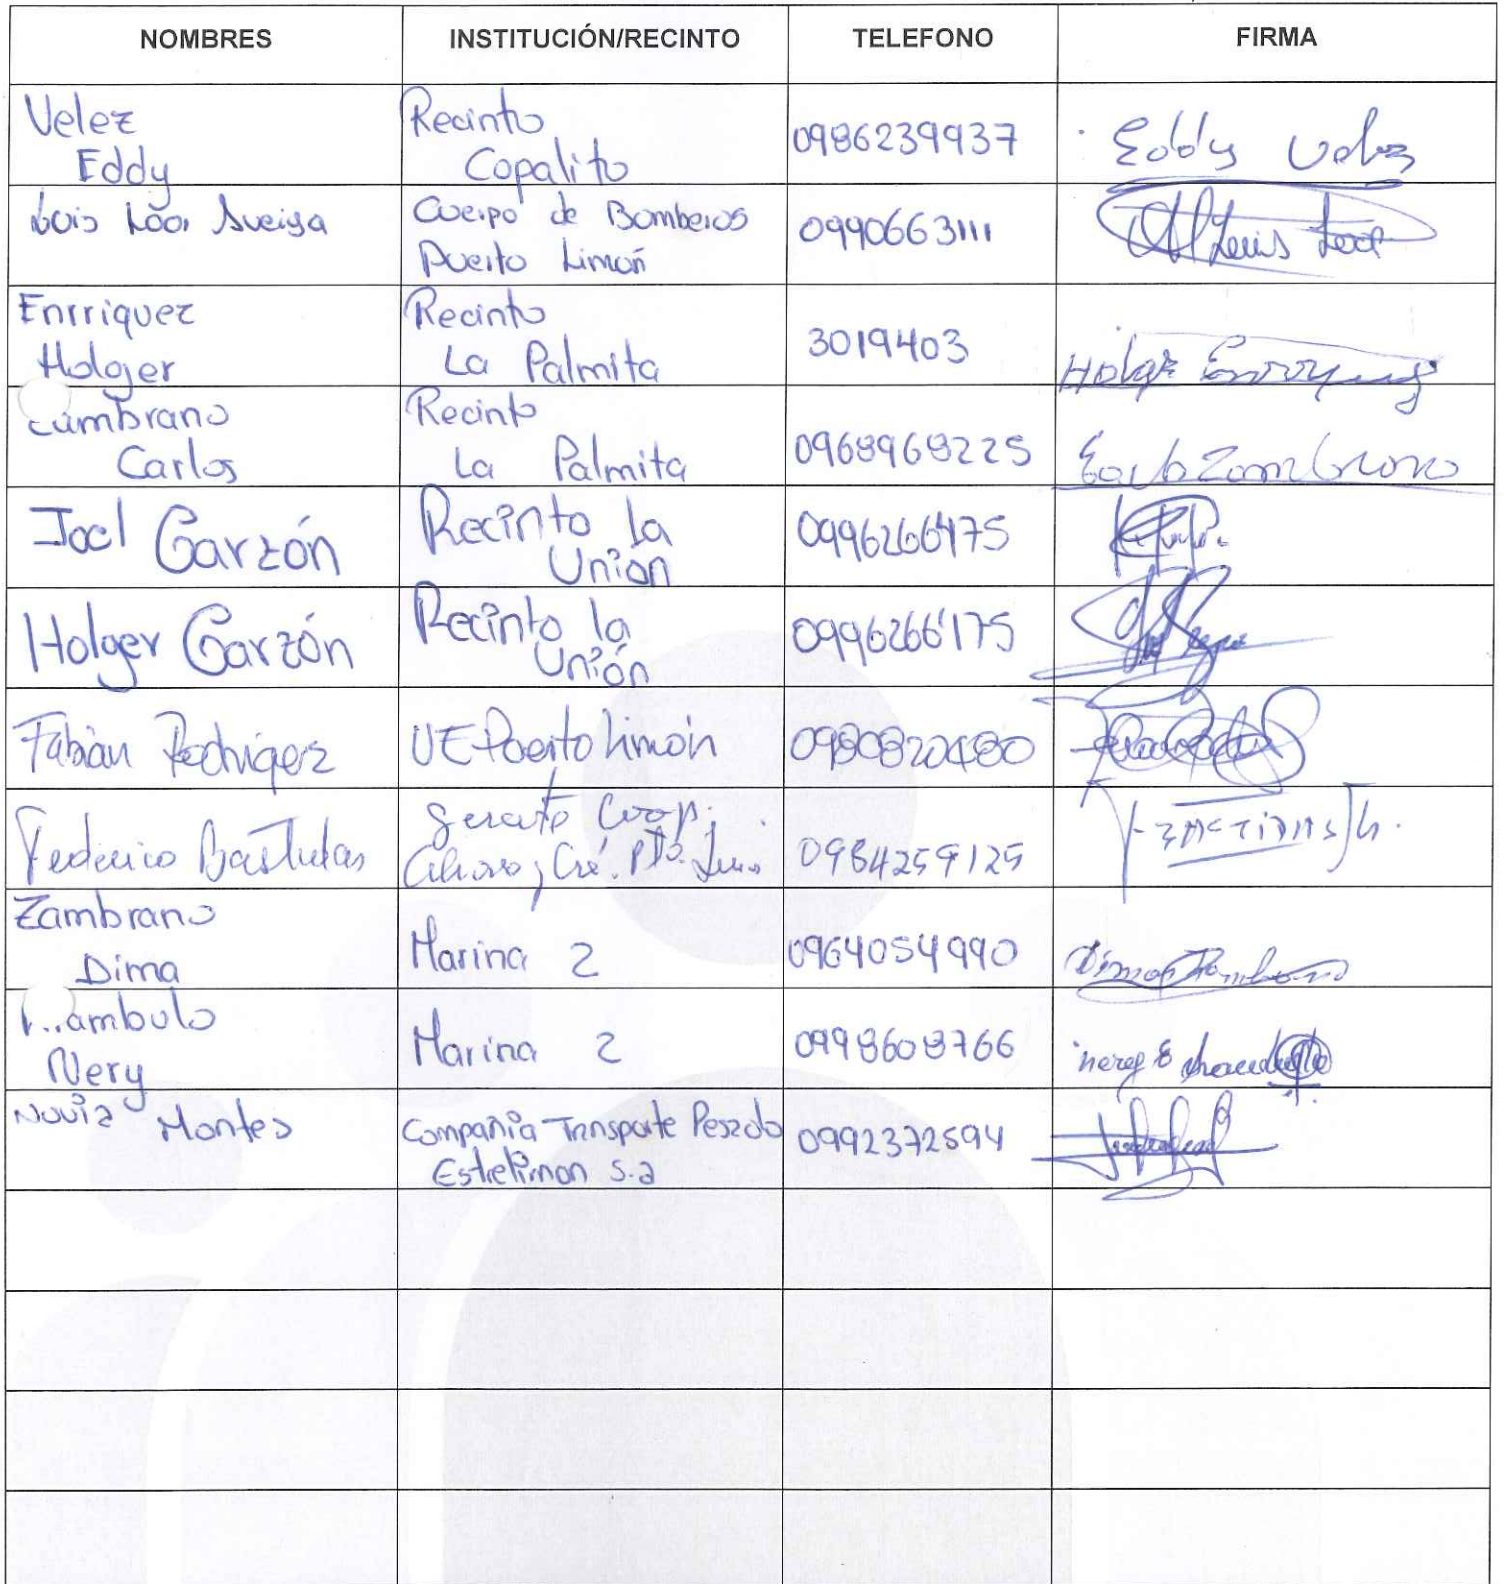 NOMBRES INSTITUCIÓN/RECINTO TELEFONO FIRMA
Velez
Eddy
Recinto
Copalito
0986239937
Eddy Velez
Luis Loor
Cuerpo de Bomberos
Puerto Limón
0990663111
Luis Loor
Enrriquez
Holger
Recinto
La Palmita
3019403
Holger
ambrano
Carlos
Recinto
La Palmita
0968968225
Zambrano
Joel Garzón
Recinto la
Unión
Holger Garzón
Recinto la
Unión
Fabián Rodriguez
UE Puerto Limón
Federico
Coop.
0984259125
Zambrano
Dima
Marina 2
0964054990
Dima Zambrano
ambulo
Nery
Marina 2
0998608766
Montes
Compañia Transporte Pesado
S.a
0992372594